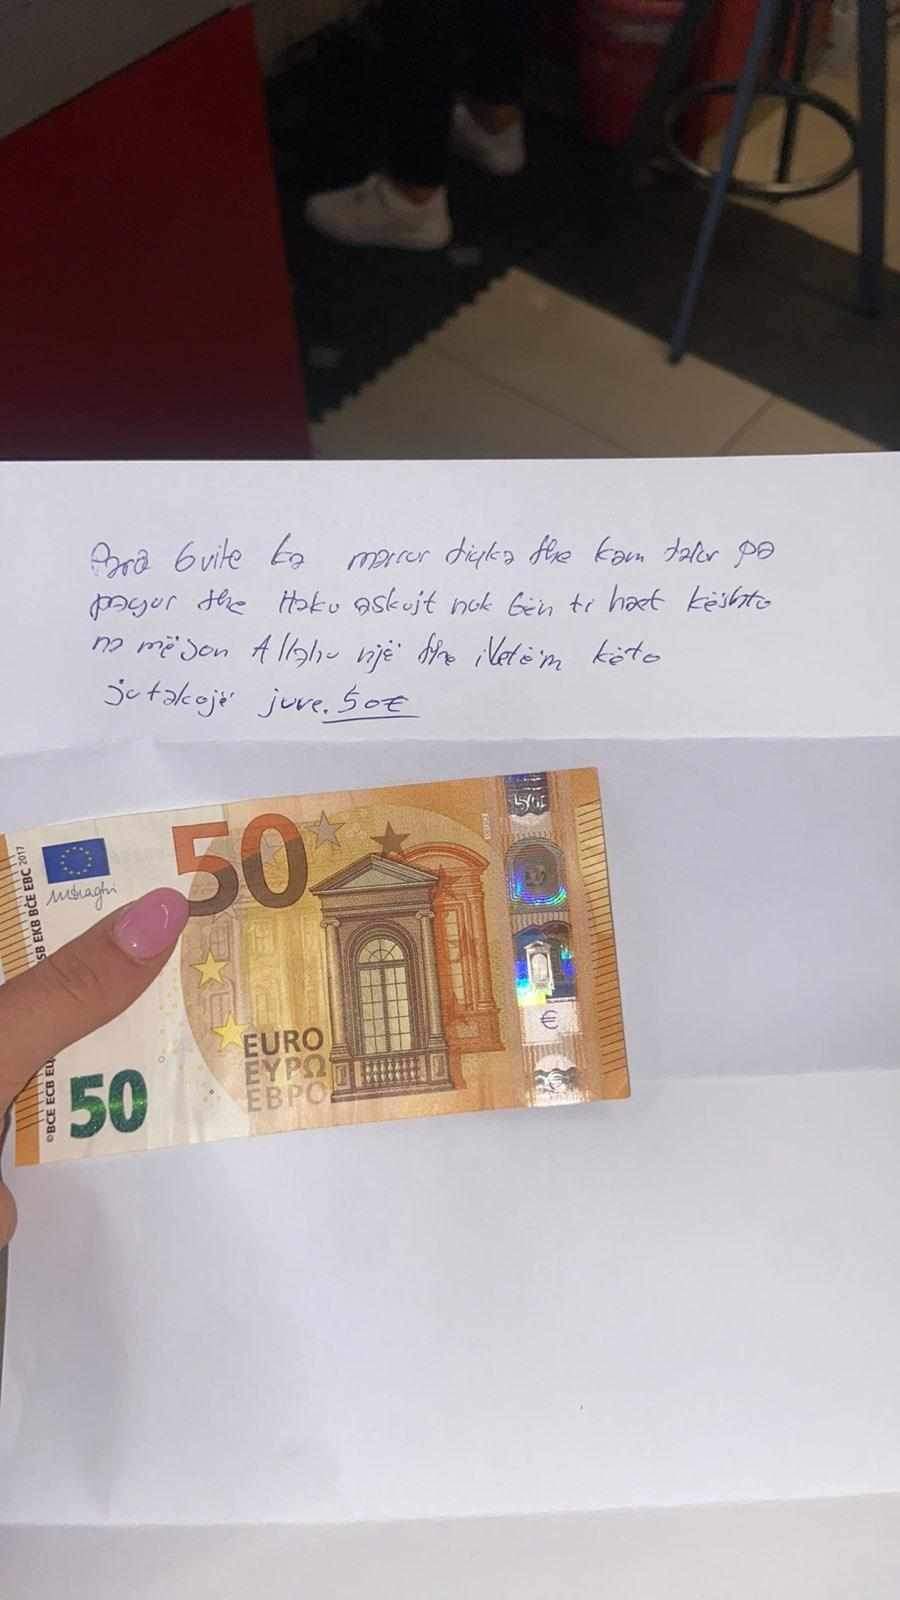 Para 6 vite ka marrur diçka dhe kam dalur pa
paguar dhe Haku askujt nuk bën ti haet kështu
na mëson Allahu një dhe iVetëm këto
ju takojë juve. 50€
50
EURO
ΕΥΡΩ
ЕВРО
50
€
©BCE ECB
EKB BCE EBC 2017